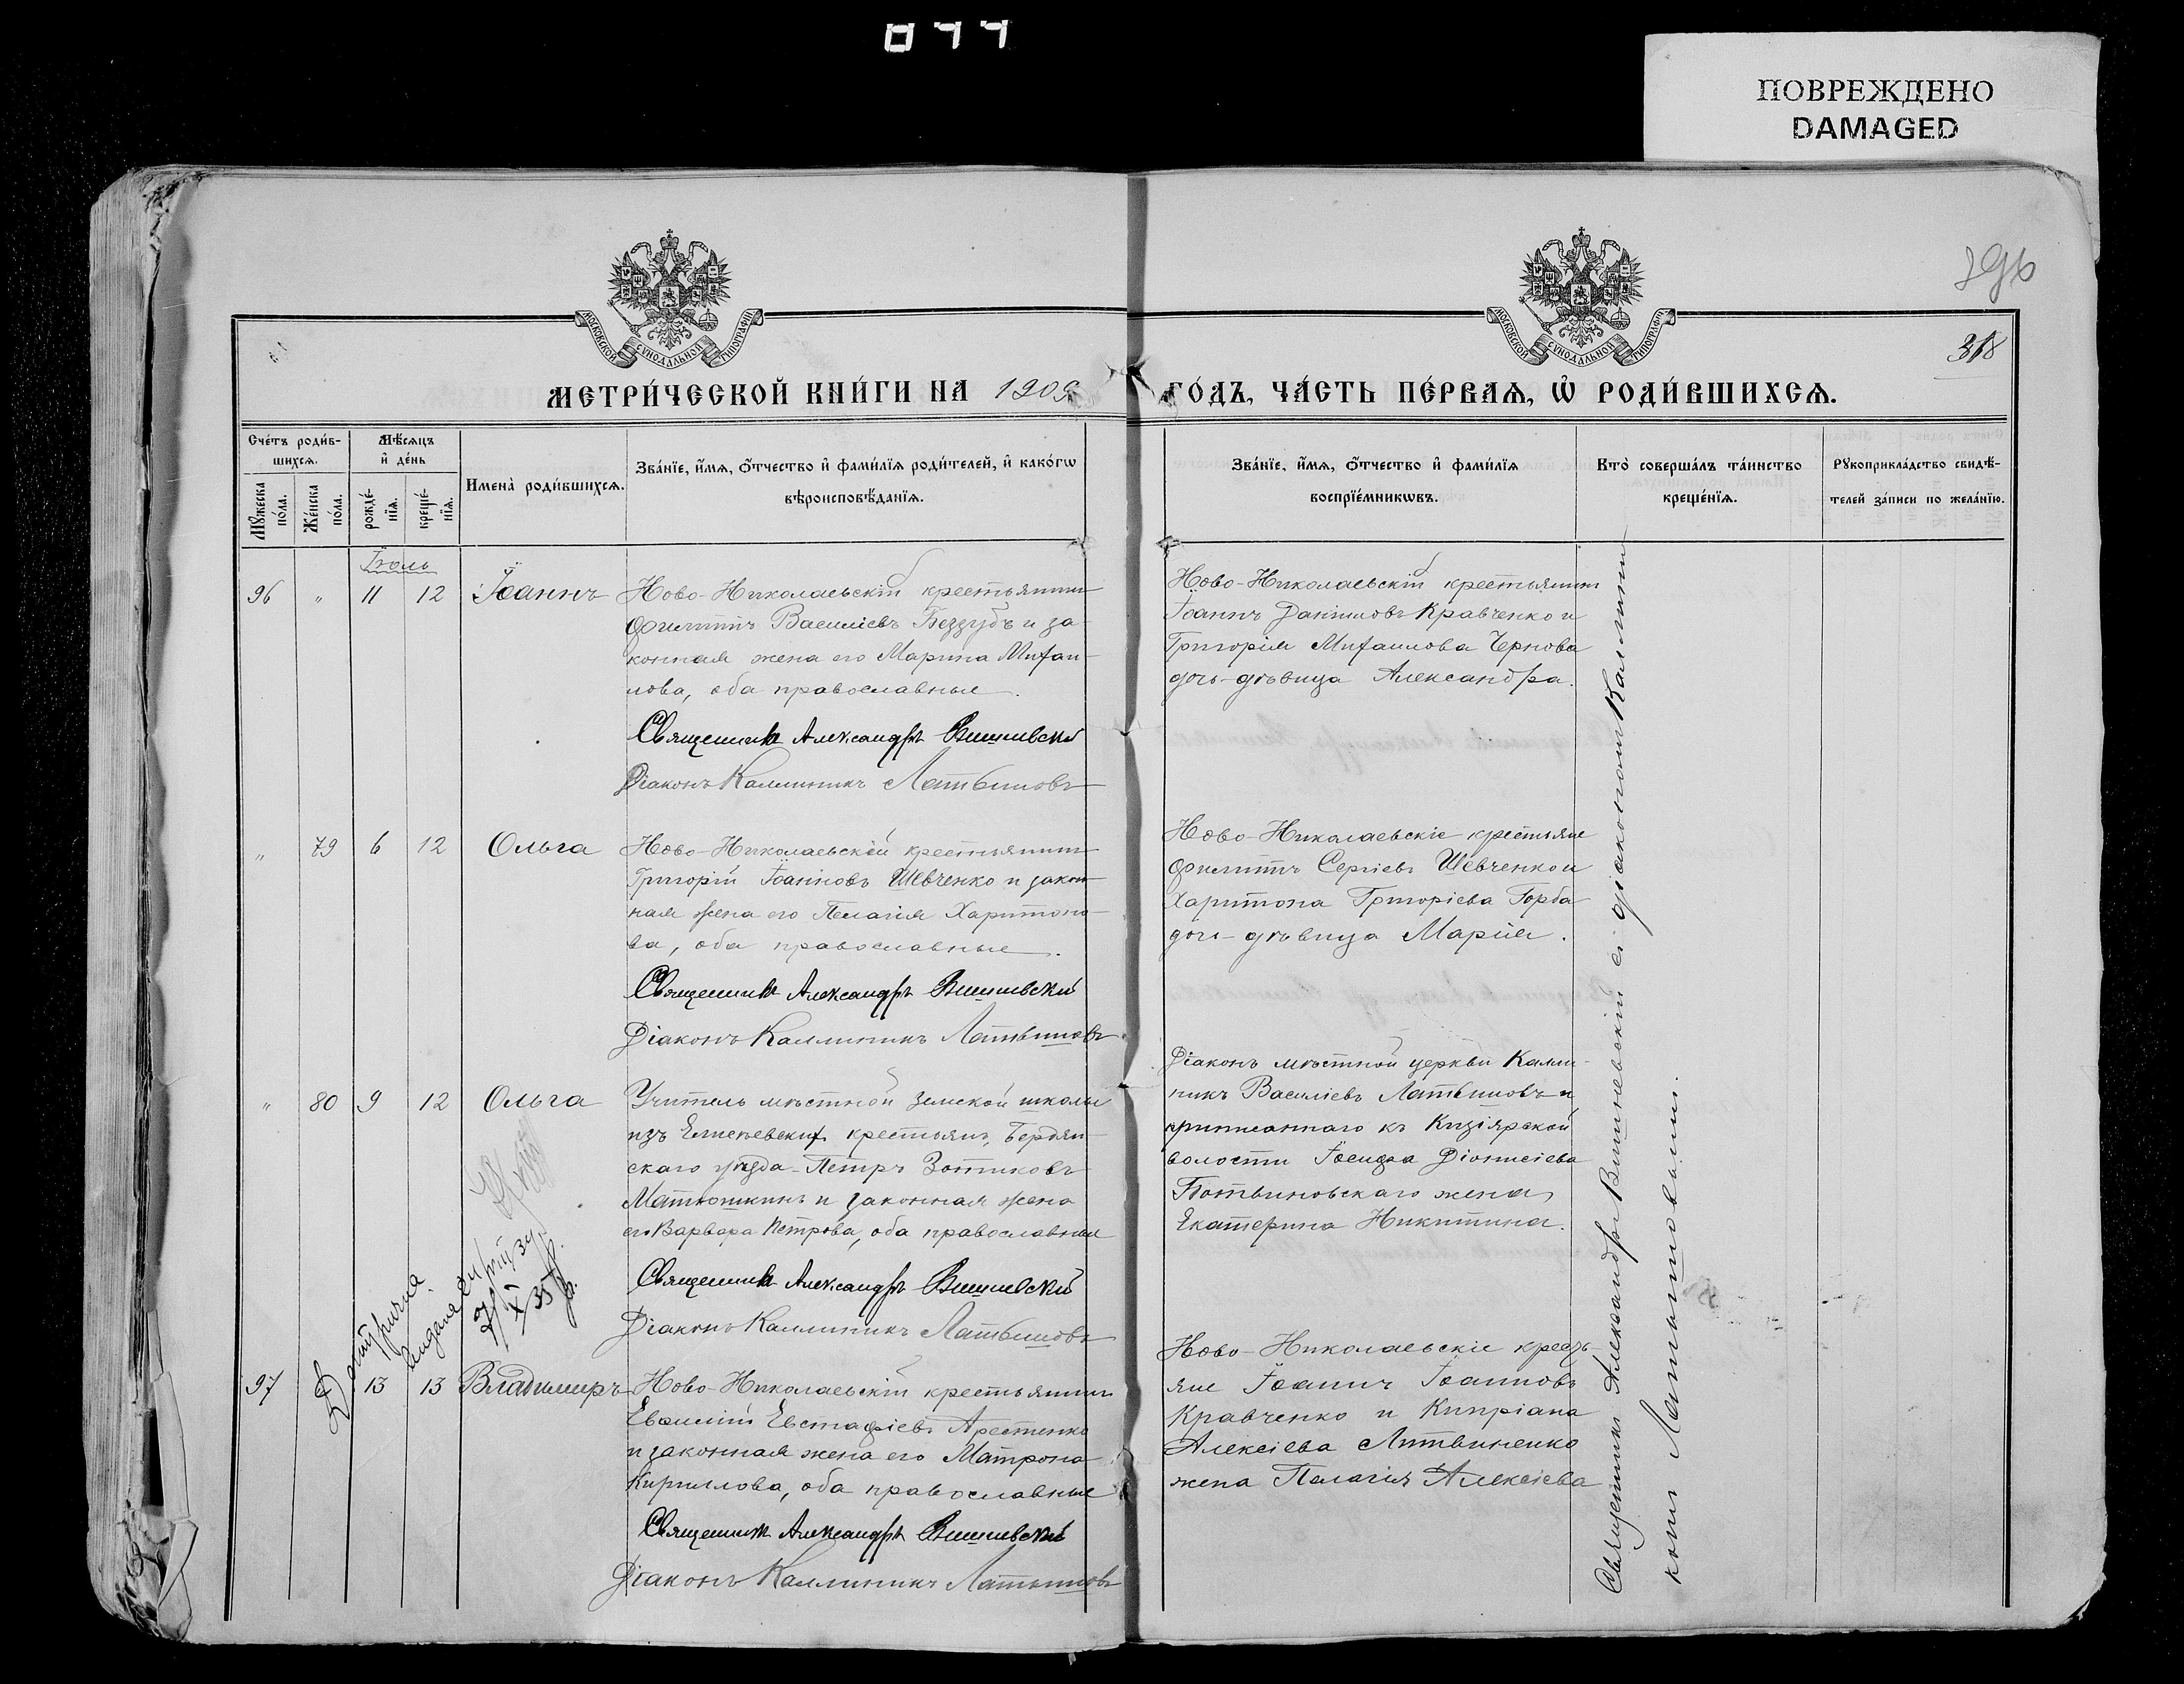 ПОВРЕЖДЕНО
DAMAGED
318
МОСКОВСКОЙ СѴНОДАЛЬНОЙ ТИПОГРАФІИ
МОСКОВСКОЙ СѴНОДАЛЬНОЙ ТИПОГРАФІИ
МЕТРИ́ЧЕСКОЙ КНИ́ГИ НА 1909
ГО́ДЪ, ЧА́СТЬ ПЕ́РВАѦ, Ѡ҆ РОДИ́ВШИХСѦ.
Сче́тъ роди́в-
шихсѧ.
Мꙋ́жеска по́ла.
Же́нска по́ла.
Мѣ́сѧцъ
и҆ де́нь
рожде́-
нїѧ.
креще́-
нїѧ.
Имена̀ роди́вшихсѧ.
Зва́нїе, и҆́мѧ, ѻ҆́тчество и҆ фами́лїѧ роди́телей, и҆ како́гѡ
вѣроисповѣ́данїѧ.
Зва́нїе, и҆́мѧ, ѻ҆́тчество и҆ фами́лїѧ
воспрїе́мникѡвъ.
Кто̀ соверша́лъ та́инство
креще́нїѧ.
Рꙋкоприкла́дство свидѣ́-
телей за́писи по жела́нїю.
Іюль
96 " 11 12 Іоаннъ
Ново-Николаевскій крестьянинъ
Филиппъ Василіевъ Беззубъ и за-
конная жена его Марина Михаи-
лова, оба православные.
Священникъ Александръ Вишневскій
Діаконъ Каллиникъ Латышовъ
Ново-Николаевскій крестьянинъ
Іоаннъ Даніиловъ Кравченко и
Григорія Михаилова Чернова
дочь-дѣвица Александра.
" 79 6 12 Ольга
Ново-Николаевскій крестьянинъ
Григорій Іоанновъ Шевченко и закон-
ная жена его Пелагія Харитоно-
ва, оба православные.
Священникъ Александръ Вишневскій
Діаконъ Каллиникъ Латышовъ
Ново-Николаевскіе крестьяне
Филиппъ Сергіевъ Шевченко и
Харитона Григоріева Горба
дочь-дѣвица Марія.
" 80 9 12 Ольга
Учитель мѣстной земской школы
изъ Елисѣевскихъ крестьянъ, Бердян-
скаго уѣзда-Петръ Зотиковъ
Матюшкинъ и законная жена
его Варвара Петрова, оба православные
Священникъ Александръ Вишневскій
Діаконъ Каллиникъ Латышовъ
Діаконъ мѣстной церкви Калли-
никъ Василіевъ Латышовъ и
приписаннаго къ Кизіярской
волости Іосифа Діонисіева
Потвиновскаго жена
Екатерина Никитина.
97 13 13 Владимиръ
Ново-Николаевскій крестьянинъ
Евстафіевъ Арестенко
и законная жена его Матрона
Кириллова, оба православные
Священникъ Александръ Вишневскій
Діаконъ Каллиникъ Латышовъ
Ново-Николаевскіе кресть-
яне Іоаннъ Іоанновъ
Кравченко и Кипріана
Алексіева Литвиненко
жена Пелагія Алексіева
Священникъ Александръ Вишневскій съ діакономъ Калли-
никомъ Латышовымъ.